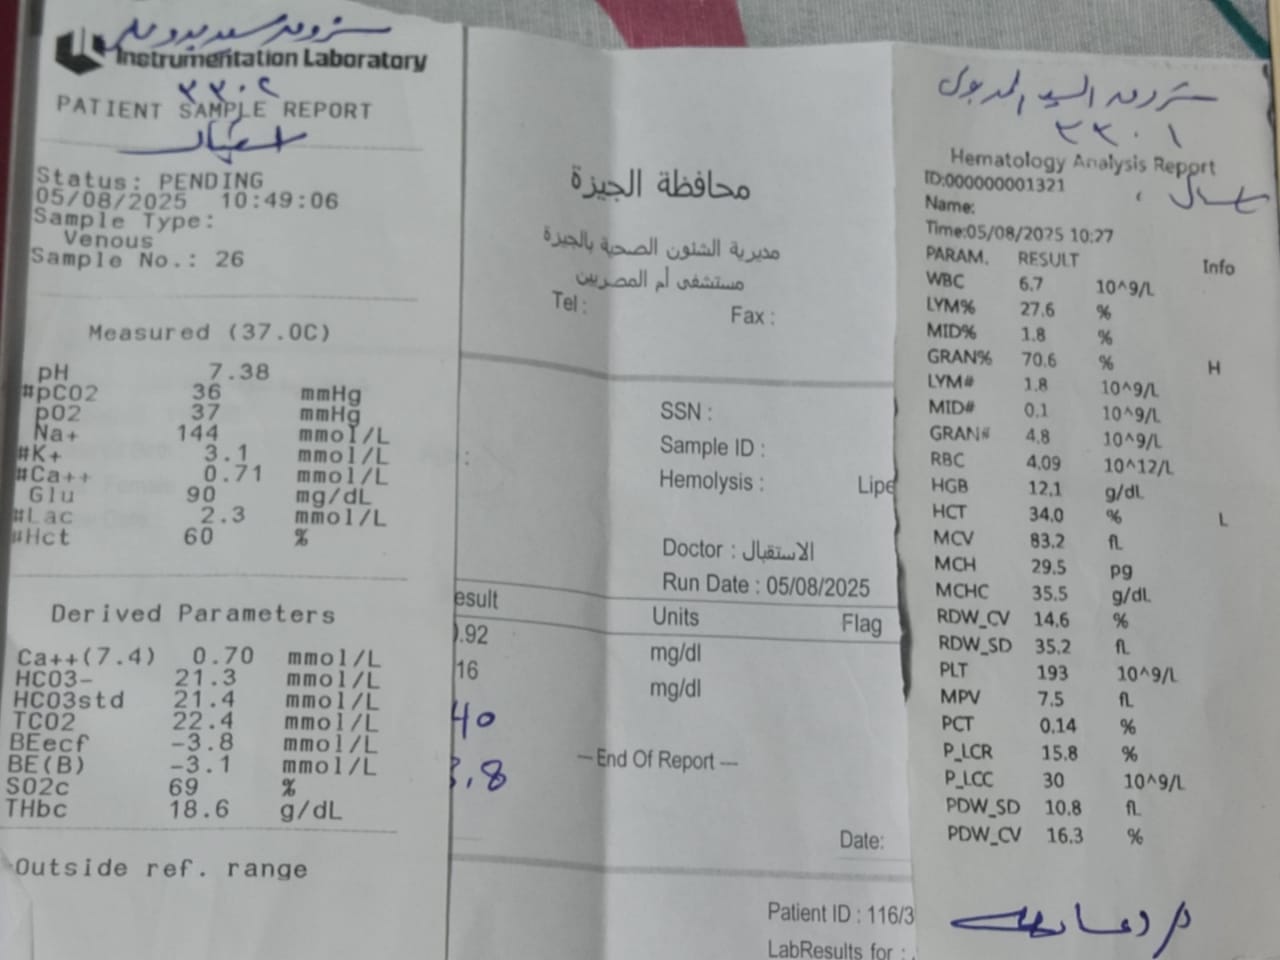 Instrumentation Laboratory
٣٣٠٢
PATIENT SAMPLE REPORT
استقبال
Status: PENDING
05/08/2025 10:49:06
Sample Type:
Venous
Sample No.: 26
Measured (37.0C)
pH 7.38
#pCO2 36 mmHg
pO2 37 mmHg
Na+ 144 mmol/L
#K+ 3.1 mmol/L
#Ca++ 0.71 mmol/L
Glu 90 mg/dL
#Lac 2.3 mmol/L
#Hct 60 %
Derived Parameters
Ca++(7.4) 0.70 mmol/L
HCO3- 21.3 mmol/L
HCO3std 21.4 mmol/L
TCO2 22.4 mmol/L
BEecf -3.8 mmol/L
BE(B) -3.1 mmol/L
SO2c 69 %
THbc 18.6 g/dL
Outside ref. range
محافظة الجيزة
مديرية الشئون الصحية بالجيزة
مستشفى أم المصريين
Tel : Fax :
SSN :
Sample ID :
Hemolysis : Lipe
Doctor : الاستقبال
Run Date : 05/08/2025
esult Units Flag
0.92 mg/dl
16 mg/dl
40
3.8
--- End Of Report ---
Date:
Patient ID : 116/3
LabResults for :
٣٣٠١
Hematology Analysis Report
ID:000000001321
Name:
Time:05/08/2025 10:27
PARAM. RESULT Info
WBC 6.7 10^9/L
LYM% 27.6 %
MID% 1.8 %
GRAN% 70.6 % H
LYM# 1.8 10^9/L
MID# 0.1 10^9/L
GRAN# 4.8 10^9/L
RBC 4.09 10^12/L
HGB 12.1 g/dL
HCT 34.0 % L
MCV 83.2 fL
MCH 29.5 pg
MCHC 35.5 g/dL
RDW_CV 14.6 %
RDW_SD 35.2 fL
PLT 193 10^9/L
MPV 7.5 fL
PCT 0.14 %
P_LCR 15.8 %
P_LCC 30 10^9/L
PDW_SD 10.8 fL
PDW_CV 16.3 %